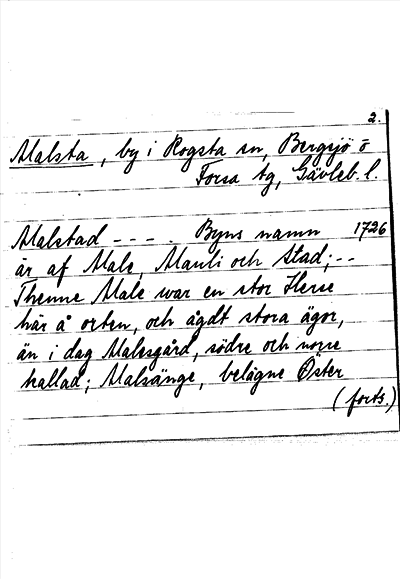 2.
Malsta, by i Rogsta sn, Bergsjö o
Forsa tg, Gävleb. l.
Malstad - - - . Byns namn 1726
är af Male, Mauli och stad; - -
Thenne Male war en stor Herre
här å orten, och ågdt stora ägor,
än i dag Malesgård, södre och norre
kallad; Malsänge, belägne Öster
(forts.)